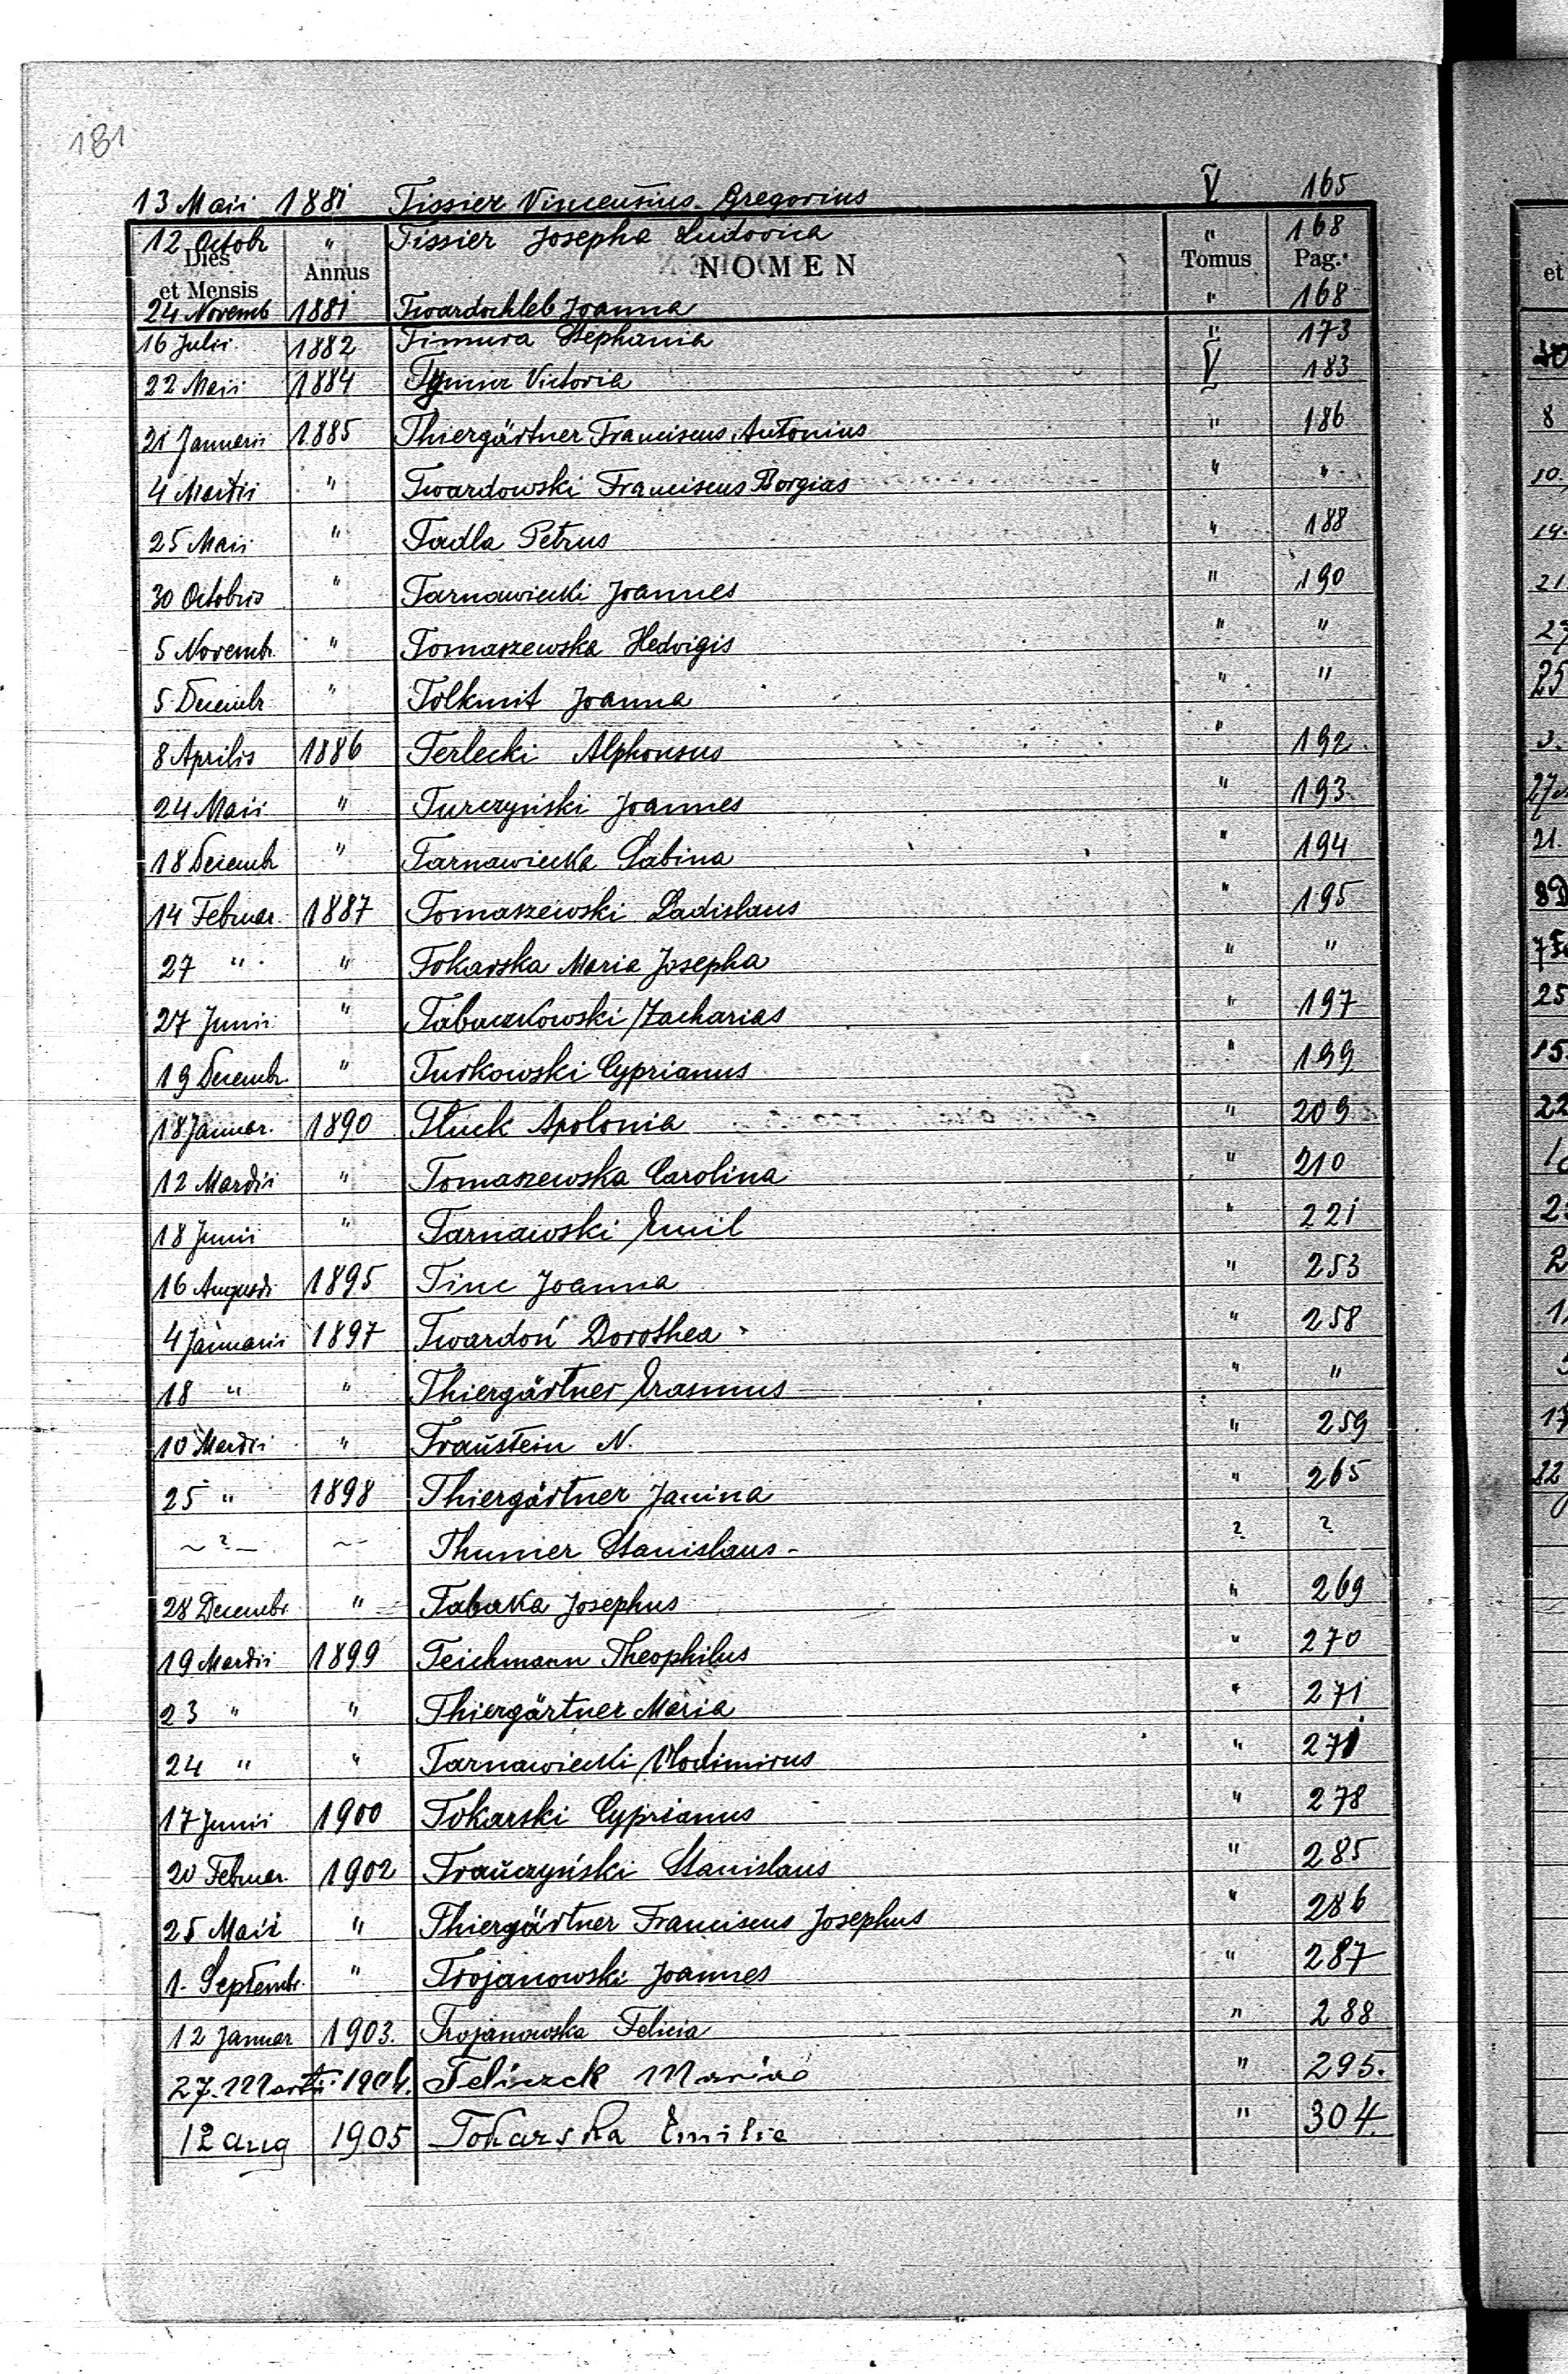 181
13 Maii 1881 Tissier Vincentius Gregorius V 165
12 Octobr " Tissier Josepha Ludovica " 168
Dies et Mensis Annus NOMEN Tomus Pag.
24 Novemb 1881 Twardochleb Joanna " 168
16 Julii 1882 Timura Stephania " 173
22 Maii 1884 Victoria V 183
21 Januarii 1885 Thiergärtner Franciscus Antonius " 186
4 Martii " Twardowski Franciscus Borgias " "
25 Maii " Tadla Petrus " 188
30 Octobris " Tarnawiecki Joannes " 190
5 Novembr. " Tomaszewska Hedvigis " "
5 Decembr " Tolkmit Joanna " "
8 Aprilis 1886 Terlecki Alphonsus " 192
24 Maii " Turczyński Joannes " 193
18 Decemb " Tarnawiecka Sabina " 194
14 Februar. 1887 Tomaszewski Ladislaus " 195
27 " " Tokarska Maria Josepha " "
27 Junii " Tabaczkowski Zacharias " 197
19 Decembr. " Turkowski Cyprianus " 199
18 Januar. 1890 Tłuck Apolonia " 209
12 Martii " Tomaszewska Carolina " 210
18 Junii " Tarnawski Emil " 221
16 Augusti 1895 Tinc Joanna " 253
4 Januarii 1897 Twardoń Dorothea " 258
18 " " Thiergärtner Erasmus " "
10 Martii " Traŭstein N. " 259
25 " 1898 Thiergärtner Janina " 265
~ ? ~ ~ Thumer Stanislaus - ? ?
28 Decembr. " Tabaka Josephus " 269
19 Martii 1899 Teichmann Theophilus " 270
23 " " Thiergärtner Maria " 271
24 " " Tarnawiecki Wlodimirus " 271
17 Junii 1900 Tokarski Cyprianus " 278
20 Februar. 1902 Traŭczyński Stanislaus " 285
25 Maii " Thiergärtner Franciscus Josephus " 286
1. Septembr. " Trojanowski Joannes " 287
12 Januar 1903. Trojanowska Felicia " 288
27. Martii 1904. Teliczek Maria " 295.
12 aug 1905 Tokarska Emilia " 304.